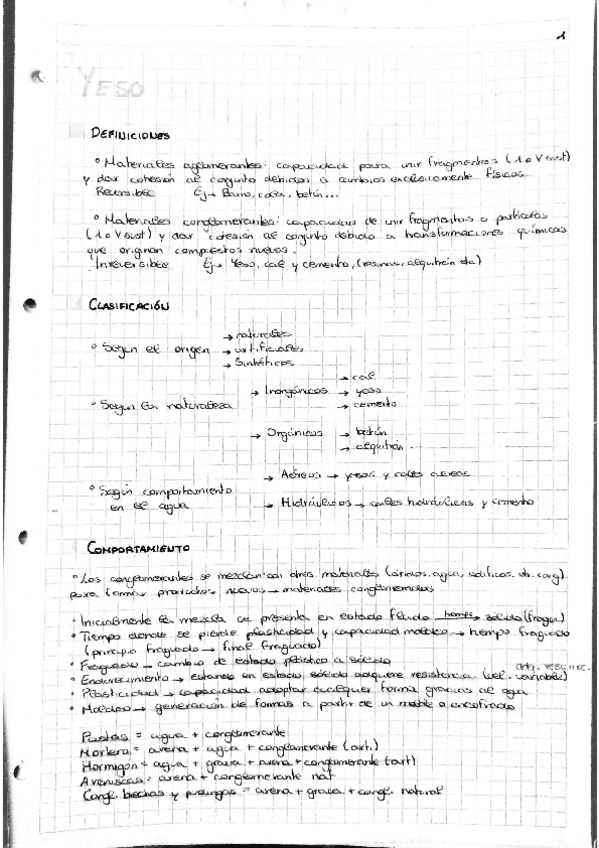 1
YESO
DEFINICIONES
° Materiales aglomerantes: capacidad para unir fragmentos (1 o V sust)
y dar cohesión al conjunto debidos a cambios exclusivamente físicos.
Reversible Ej → Barro, cola, betún...
° Materiales conglomerantes: capacidad de unir fragmentos o partículas
(1 o V sust) y dar cohesión al conjunto debido a transformaciones químicas
que originan compuestos nuevos.
Irreversible Ej → Yeso, cal y cemento, (resinas, alquitrán etc)
CLASIFICACIÓN
→ naturales
° Según el origen → artificiales
→ Sintéticos
→ cal
→ Inorgánicos → yeso
° Según la naturaleza → cemento
→ Orgánicos → betún
→ alquitrán
→ Aéreos → yesos y cales aéreas
° Según comportamiento
en el agua → Hidráulicos → cales hidráulicas y cemento
COMPORTAMIENTO
° Los conglomerantes se mezclan con otros materiales (áridos, agua, aditivos, etc.)
para formar productos nuevos → materiales conglomerados
° Inicialmente la mezcla se presenta en estado fluido tiempo → sólido (fragua)
° Tiempo donde se pierde plasticidad y capacidad moldeo → tiempo fraguado
(principio fraguado → final fraguado)
° Fraguado → cambio de estado plástico a sólido
° Endurecimiento → estando en estado sólido adquiere resistencia. (vel. variable)
° Plasticidad → capacidad adoptar cualquier forma gracias al agua
° Moldeo → generación de formas a partir de un molde o encofrado
Pastas = agua + conglomerante
Mortero = arena + agua + conglomerante (art.)
Hormigón = agua + grava + arena + conglomerante (art)
Areniscas = arena + conglomerante nat
Congl. brechas y pudingas = arena + grava + congl. natural